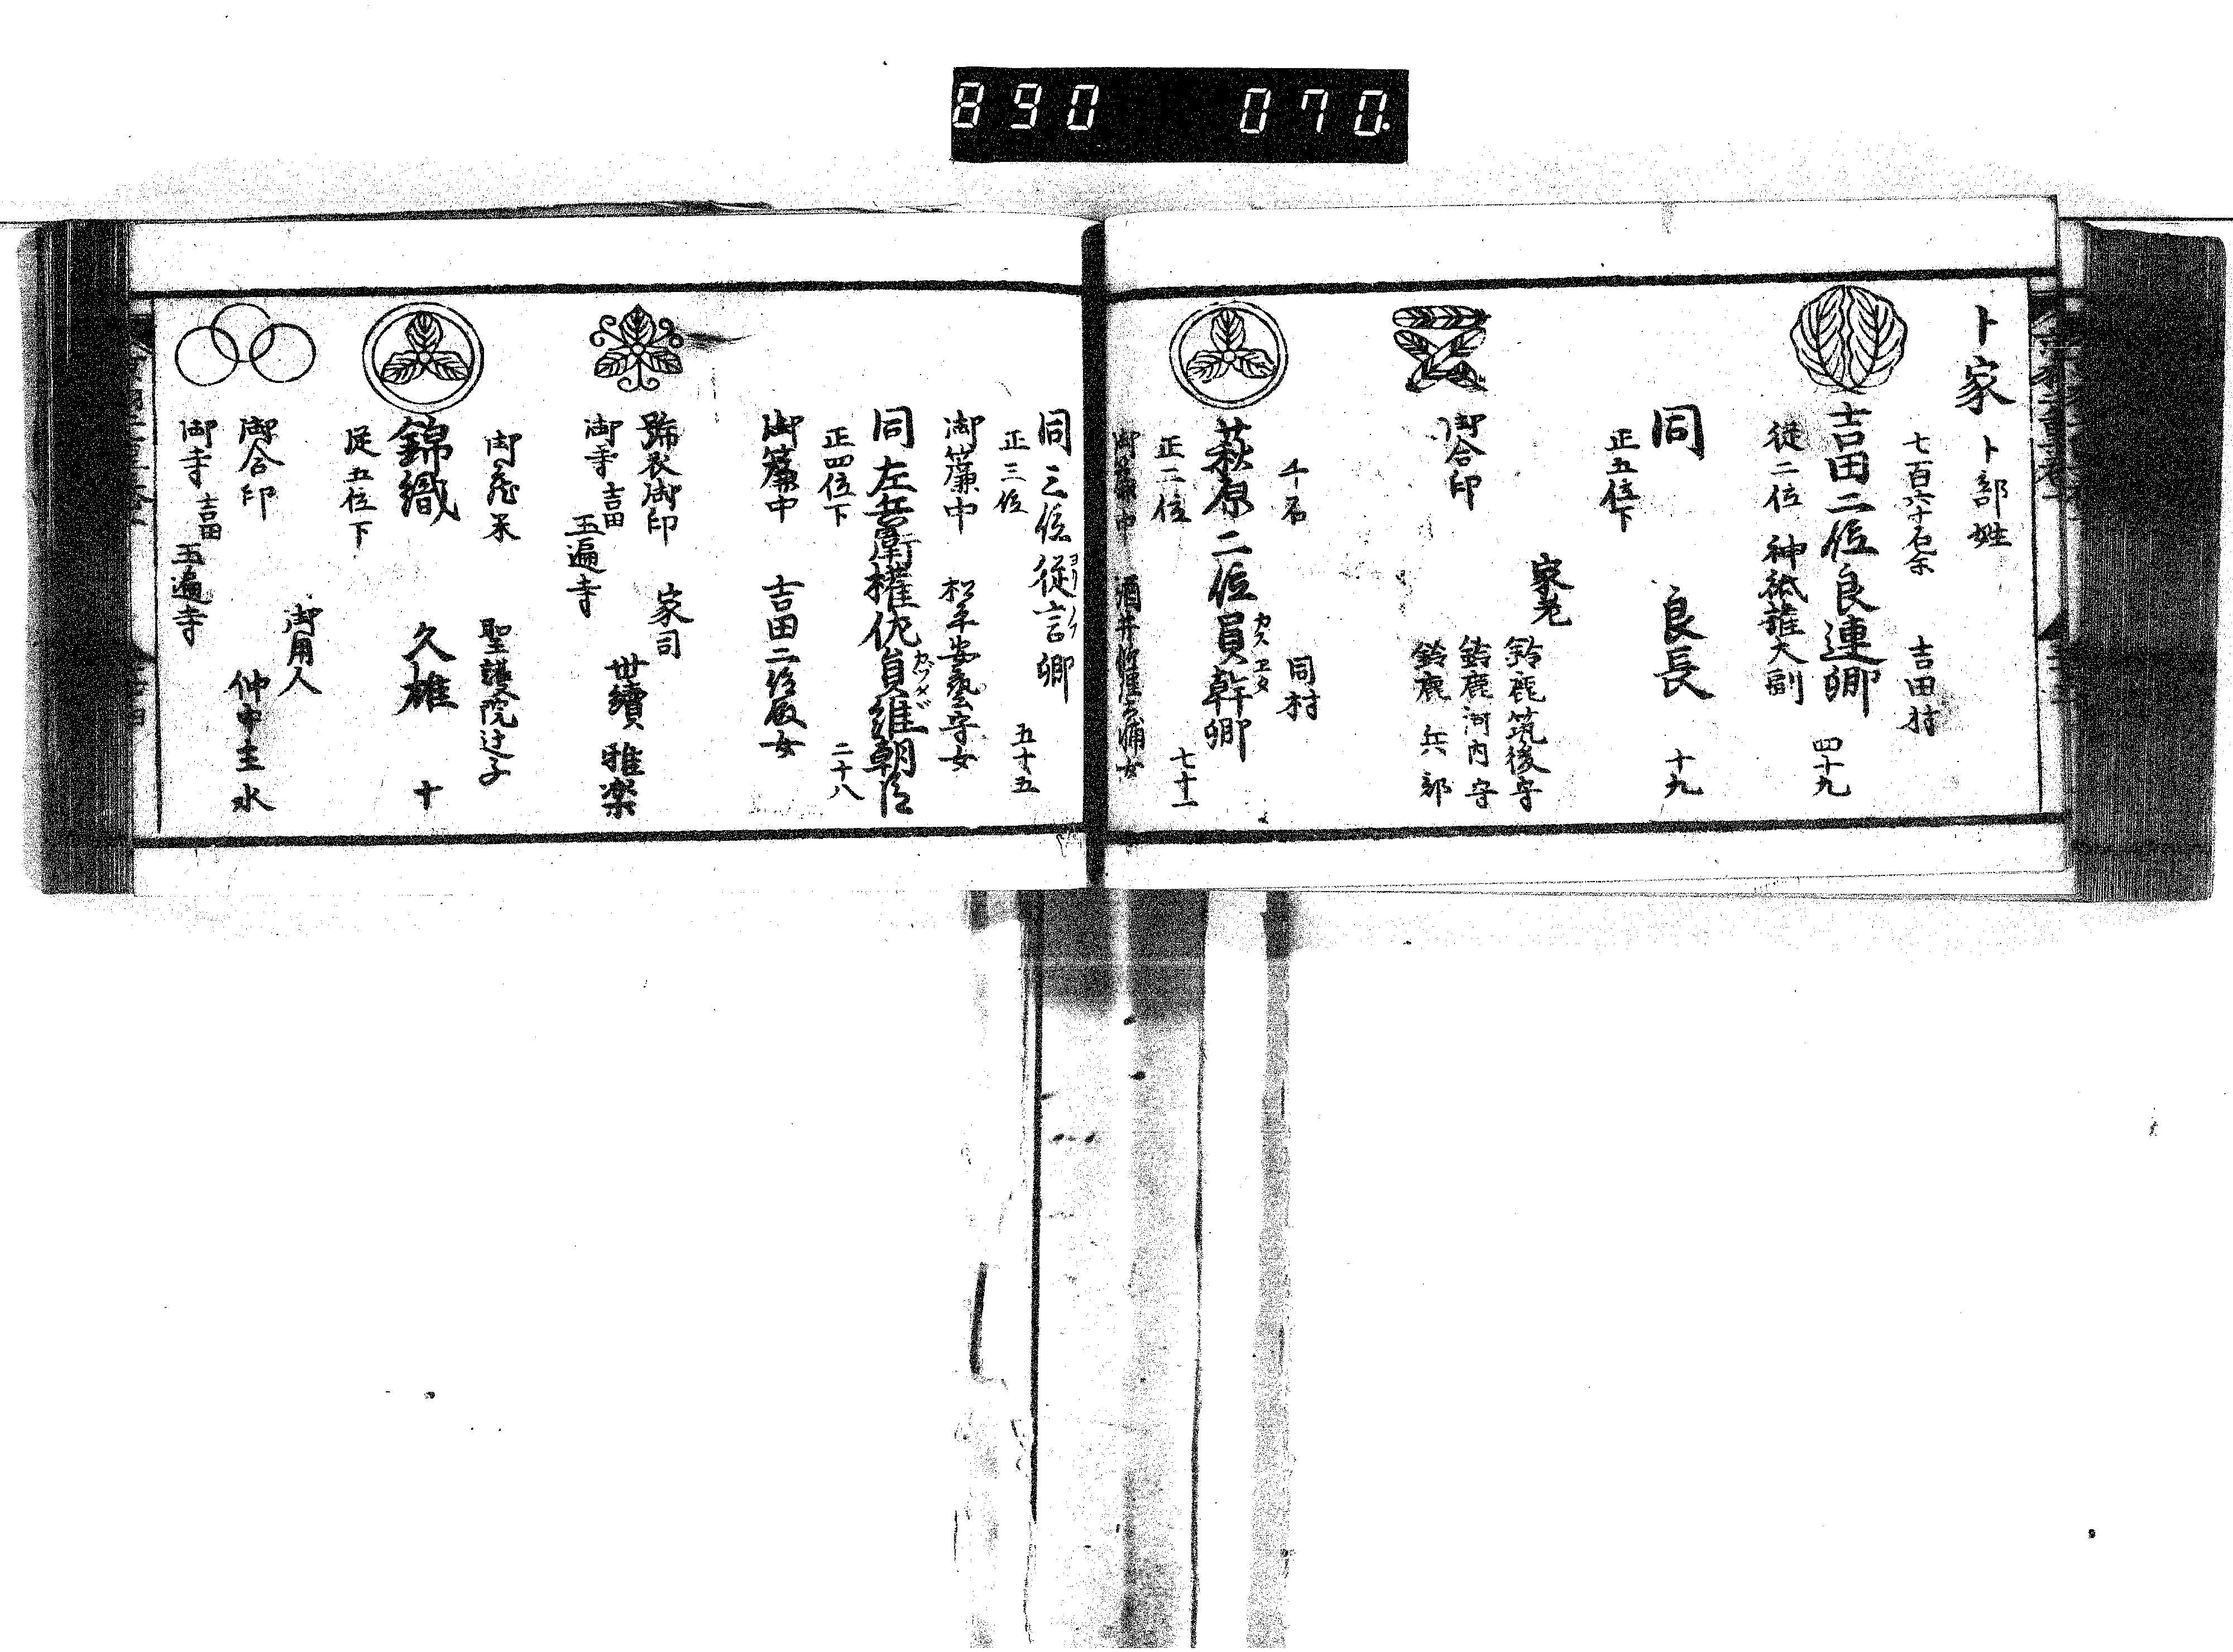 890 070.
卜家 卜部姓
七百六十石余 吉田村
吉田二位良連卿 四十九
従二位 神祇権大副
同 良長 十九
正五位下
家老
鈴鹿筑後守
鈴鹿河内守
鈴鹿兵部
御合印
千石 同村
萩原二位員幹卿
正二位 七十一
同三位従言卿
正三位 五十五
御簾中 松平安藝守女
同左兵衛権佐員維朝臣
正四位下 二十八
御簾中 吉田二位殿女
家司
世續雅楽
御印
御寺 吉田
玉遍寺
御蔵米 聖護院辻子
錦織 久雄 十
従五位下
御用人
仲中主水
御合印
御寺 吉田
玉遍寺